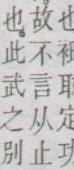 也衹取定功
故不言从止
也此武之別